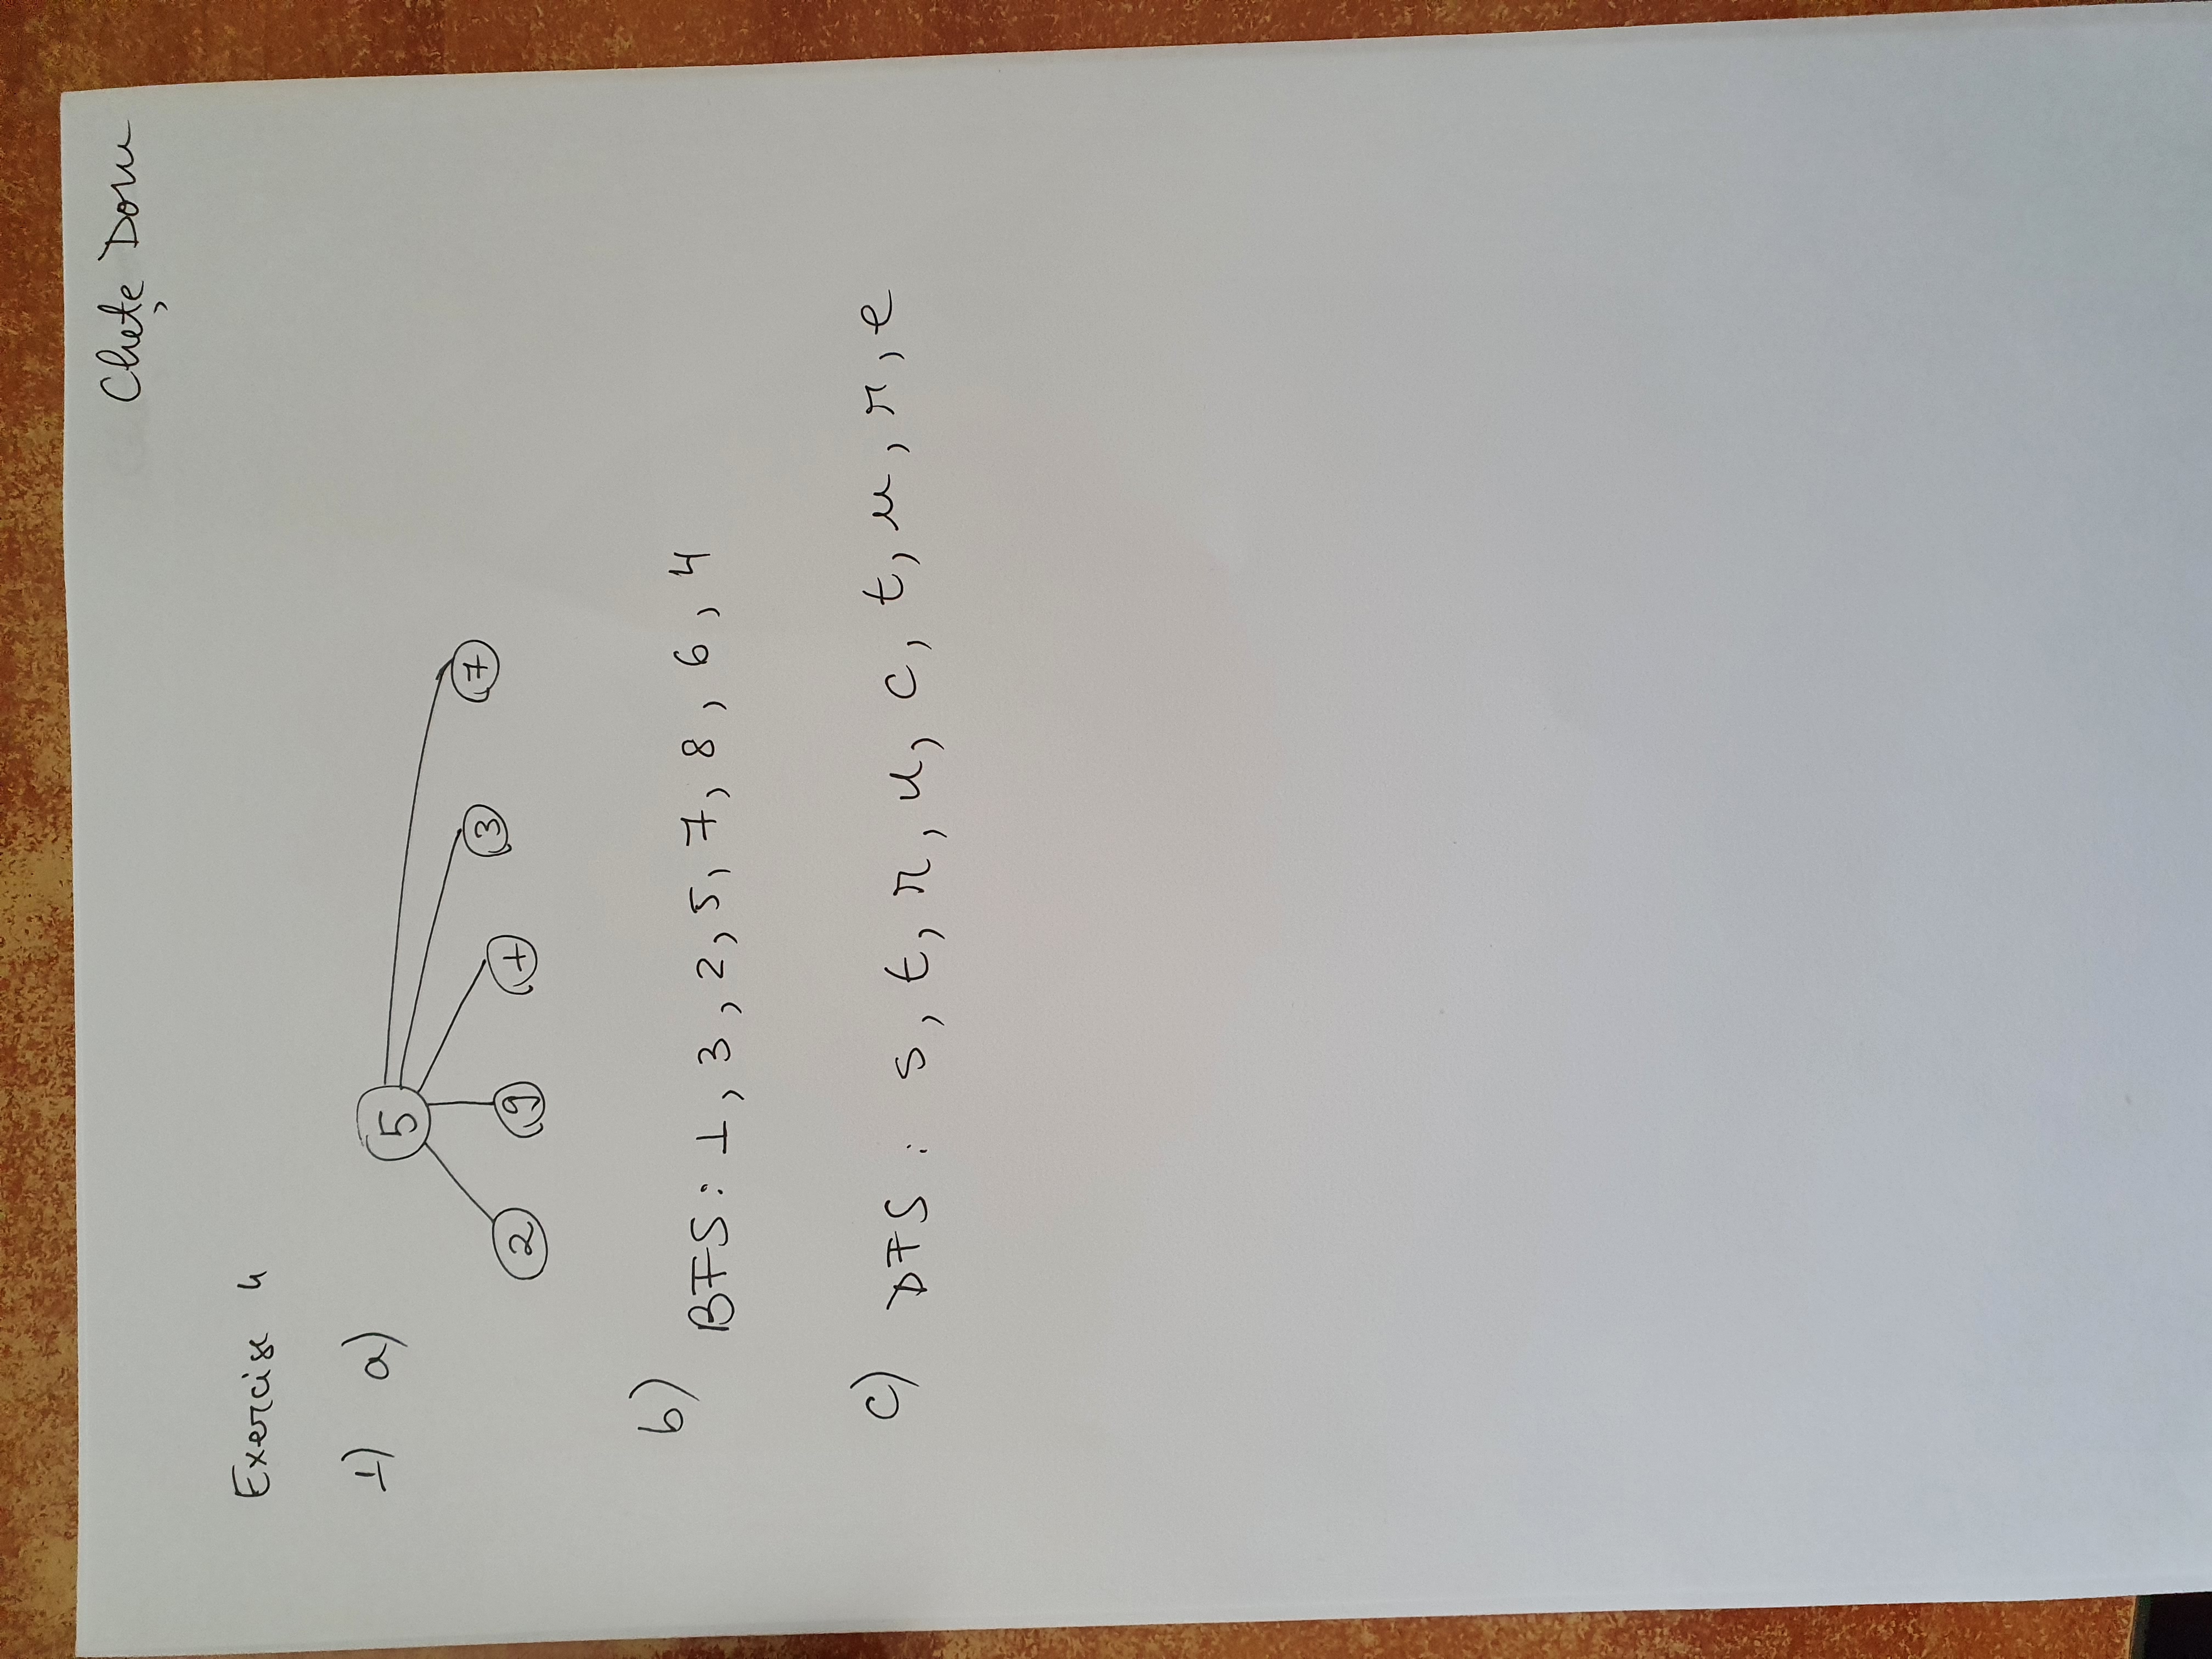 Chețe Doru
Exercise 4
1) a)
5
2 9 1 3 7
b)
BFS: 1, 3, 2, 5, 7, 8, 6, 4
c) DFS: s, t, r, u, c, t, u, r, e